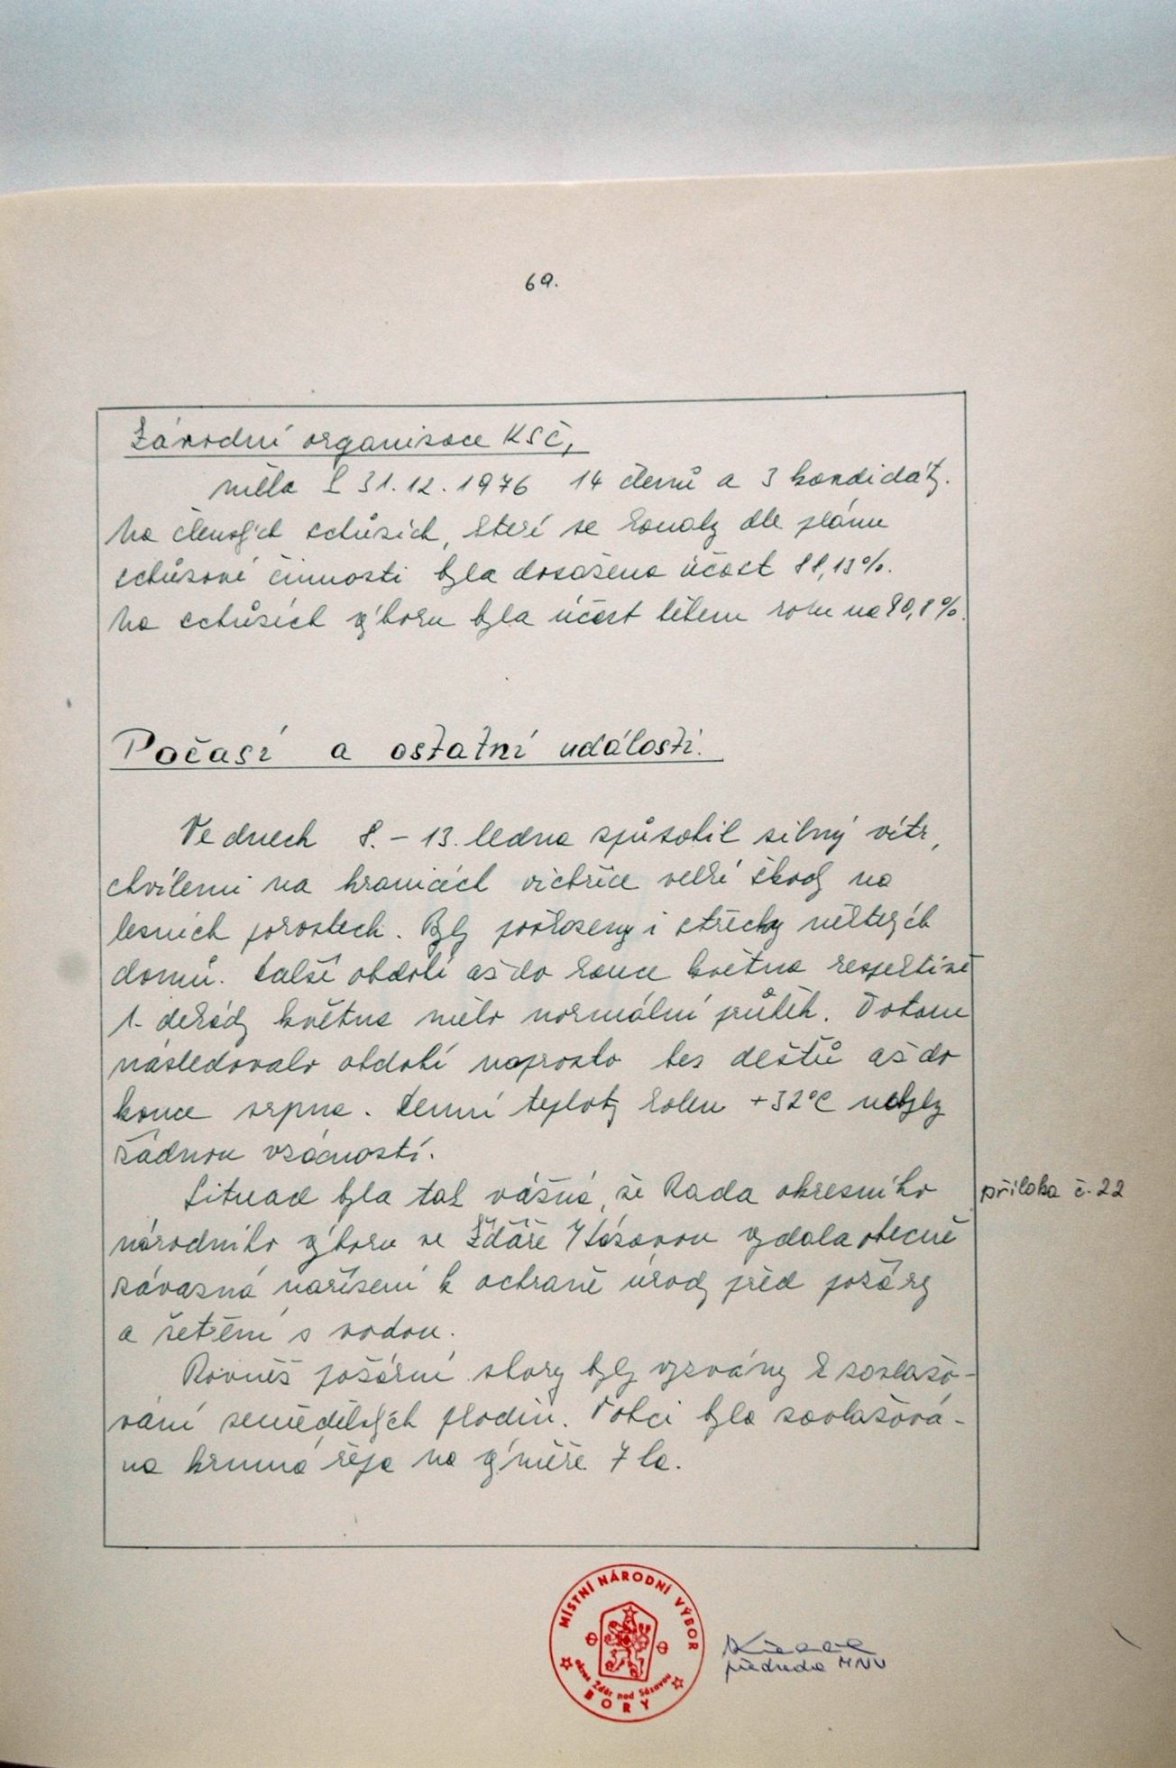 69.
Závodní organisace KSČ,
měla k 31.12.1976 14 členů a 3 kandidáty.
Na členských schůzích, které se konaly dle plánu
schůzové činnosti byla dosažena účast 88,13%.
Na schůzích výboru byla účast během roku na 90,8%.
Počasí a ostatní události.
Ve dnech 8. – 13. ledna způsobil silný vítr,
chvílemi na hranicích vichřice velké škody na
lesních porostech. Byly poškozeny i střechy některých
domů. Další období až do konce května respektive
1. dekády května mělo normální průběh. Potom
následovalo období naprosto bez deštů až do
konce srpna. Denní teploty kolem +32°C nebyly
žádnou vzácností.
Situace byla tak vážná, že Rada okresního
příloha č. 22
národního výboru ve Žďáře n/Sázavou vydala obecně
závazná nařízení k ochraně úrody před požáry
a šetření s vodou.
Rovněž požární sbory byly vyzvány k zavlažo-
vání zemědělských plodin. V obci byla zavlažová-
na krmná řepa na výměře 7 ha.
MÍSTNÍ NÁRODNÍ VÝBOR
okres Žďár nad Sázavou
BORY
předseda MNV